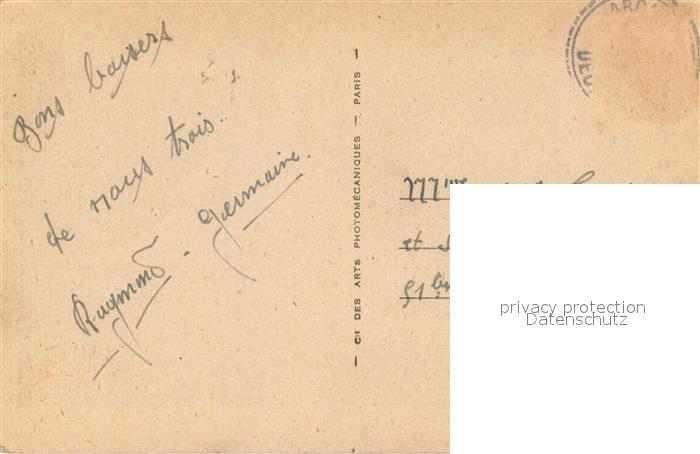 Bons baisers
de nous trois.
Raymond - Germaine.
— Cie DES ARTS PHOTOMÉCANIQUES — PARIS —
Mme
et
51 bis
privacy protection
Datenschutz